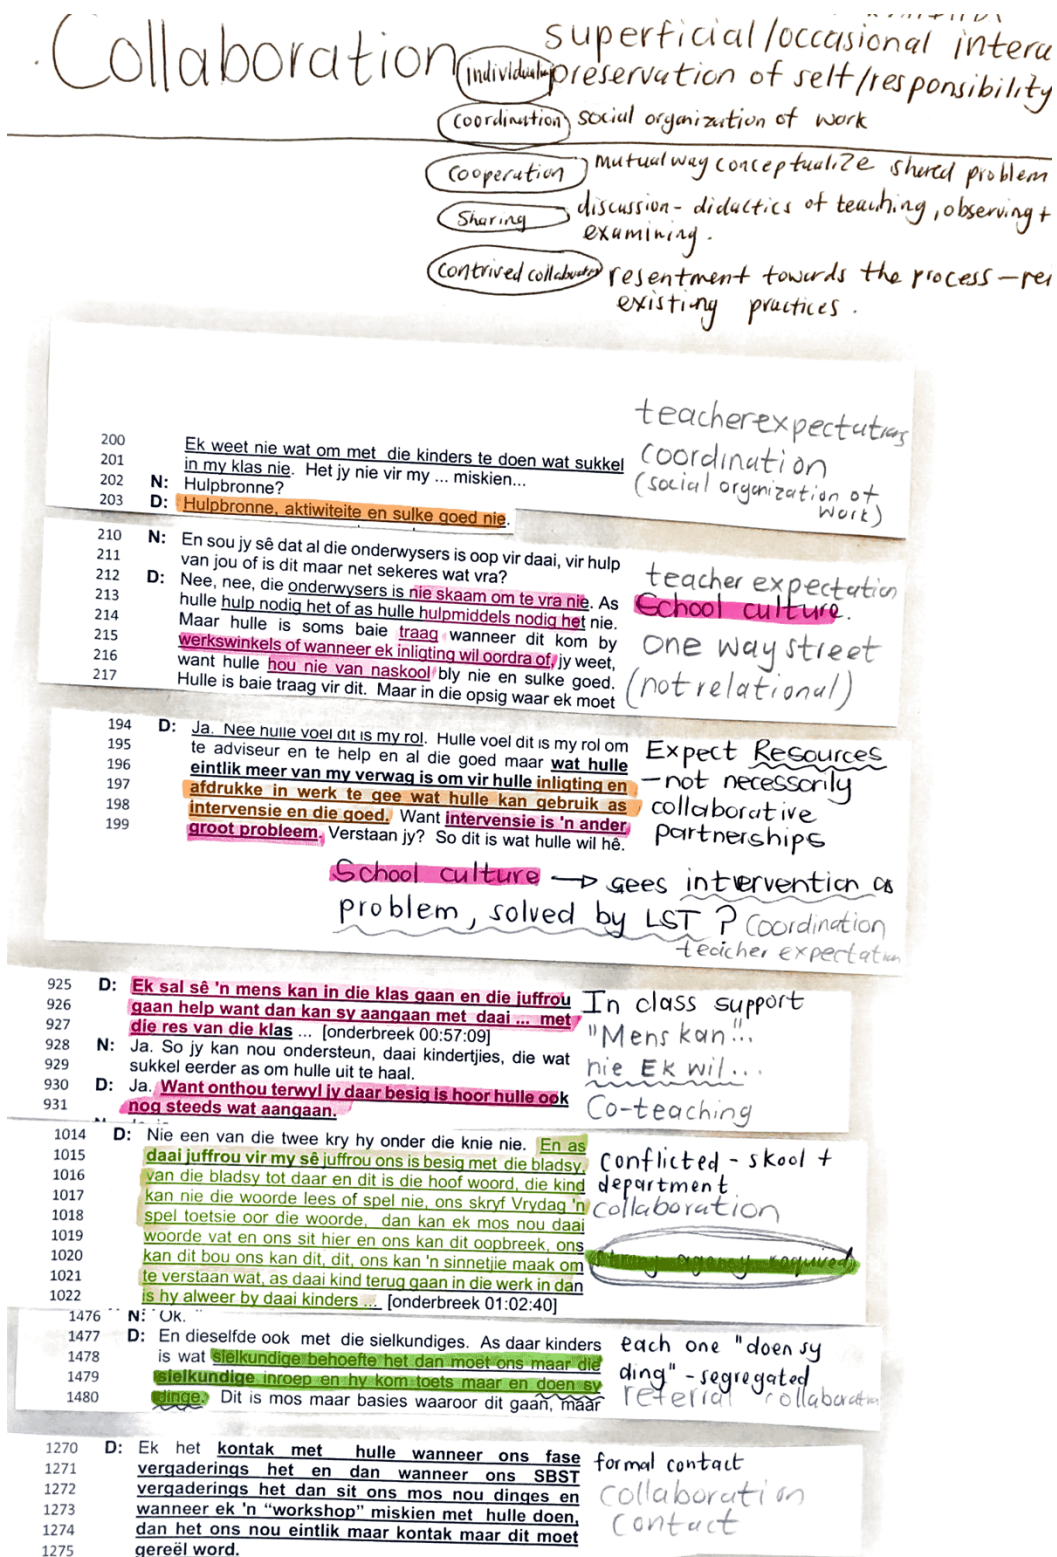 Collaboration
superficial/occasional intera
individual preservation of self/responsibility
coordination social organization of work
cooperation mutual way conceptualize shared problem
Sharing discussion - didactics of teaching, observing +
examining.
contrived resentment towards the process - rei
existing practices.
teacher expectations
coordination
(social organization of
work)
200 Ek weet nie wat om met die kinders te doen wat sukkel
201 in my klas nie. Het jy nie vir my ... miskien...
202 N: Hulpbronne?
203 D: Hulpbronne, aktiwiteite en sulke goed nie.
210 N: En sou jy sê dat al die onderwysers is oop vir daai, vir hulp
211 van jou of is dit maar net sekeres wat vra?
212 D: Nee, nee, die onderwysers is nie skaam om te vra nie. As
213 hulle hulp nodig het of as hulle hulpmiddels nodig het nie.
214 Maar hulle is soms baie traag wanneer dit kom by
215 werkswinkels of wanneer ek inligting wil oordra of, jy weet,
216 want hulle hou nie van naskool bly nie en sulke goed.
217 Hulle is baie traag vir dit. Maar in die opsig waar ek moet
teacher expectation
School culture.
one way street
(not relational)
194 D: Ja. Nee hulle voel dit is my rol. Hulle voel dit is my rol om
195 te adviseur en te help en al die goed maar wat hulle
196 eintlik meer van my verwag is om vir hulle inligting en
197 afdrukke in werk te gee wat hulle kan gebruik as
198 intervensie en die goed. Want intervensie is 'n ander
199 groot probleem. Verstaan jy? So dit is wat hulle wil hê.
Expect Resources
- not necessarily
collaborative
partnerships
School culture → sees intervention as
problem, solved by LST ? coordination
teacher expectation
925 D: Ek sal sê 'n mens kan in die klas gaan en die juffrou
926 gaan help want dan kan sy aangaan met daai ... met
927 die res van die klas ... [onderbreek 00:57:09]
928 N: Ja. So jy kan nou ondersteun, daai kindertjies, die wat
929 sukkel eerder as om hulle uit te haal.
930 D: Ja. Want onthou terwyl jy daar besig is hoor hulle ook
931 nog steeds wat aangaan.
In class support
"Mens kan"...
nie Ek wil...
Co-teaching
1014 D: Nie een van die twee kry hy onder die knie nie. En as
1015 daai juffrou vir my sê juffrou ons is besig met die bladsy,
1016 van die bladsy tot daar en dit is die hoof woord, die kind
1017 kan nie die woorde lees of spel nie, ons skryf Vrydag 'n
1018 spel toetsie oor die woorde, dan kan ek mos nou daai
1019 woorde vat en ons sit hier en ons kan dit oopbreek, ons
1020 kan dit bou ons kan dit, dit, ons kan 'n sinnetjie maak om
1021 te verstaan wat, as daai kind terug gaan in die werk in dan
1022 is hy alweer by daai kinders ... [onderbreek 01:02:40]
conflicted - skool +
department
collaboration
agency required
1476 N: Ok.
1477 D: En dieselfde ook met die sielkundiges. As daar kinders
1478 is wat sielkundige behoefte het dan moet ons maar die
1479 sielkundige inroep en hy kom toets maar en doen sy
1480 dinge. Dit is mos maar basies waaroor dit gaan, maar
each one "doen sy
ding" - segregated
referral collaboration
1270 D: Ek het kontak met hulle wanneer ons fase
1271 vergaderings het en dan wanneer ons SBST
1272 vergaderings het dan sit ons mos nou dinges en
1273 wanneer ek 'n "workshop" miskien met hulle doen,
1274 dan het ons nou eintlik maar kontak maar dit moet
1275 gereël word.
formal contact
collaboration
contact